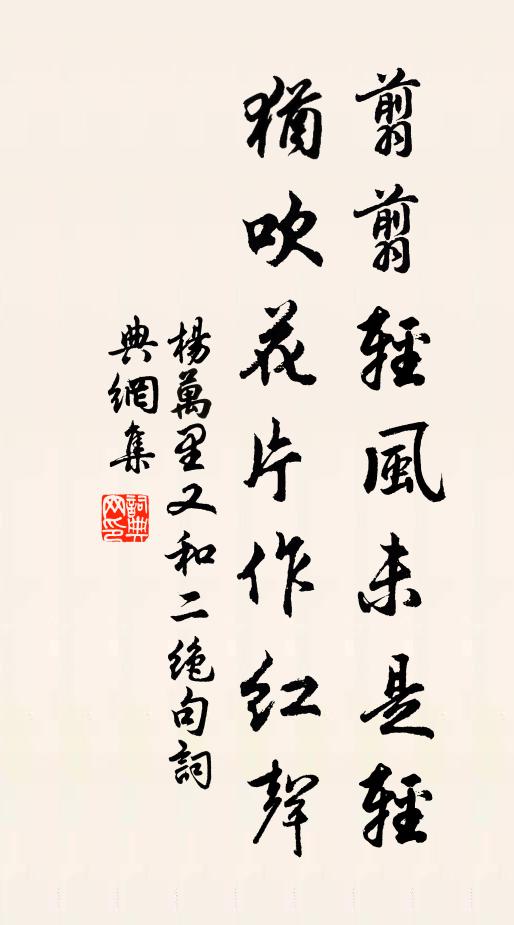 翦翦輕風未是輕
猶吹花片作紅聲
楊萬里又和二絶句詞
典網集
詞典
网印